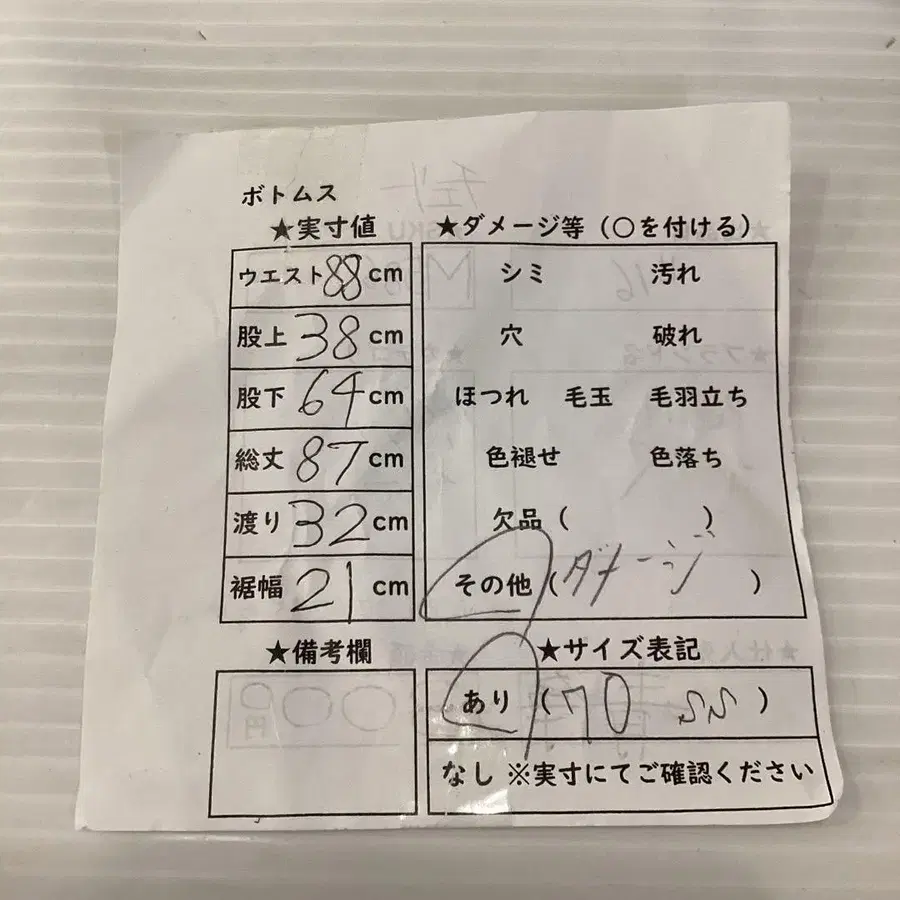 ボトムス
★実寸値
ウエスト88cm
股上38cm
股下64cm
総丈87cm
渡り32cm
裾幅21cm
★備考欄
★ダメージ等（〇を付ける）
シミ 汚れ
穴 破れ
ほつれ 毛玉 毛羽立ち
色褪せ 色落ち
欠品（ ）
その他（ダメージ）
★サイズ表記
あり（70 SS）
なし ※実寸にてご確認ください